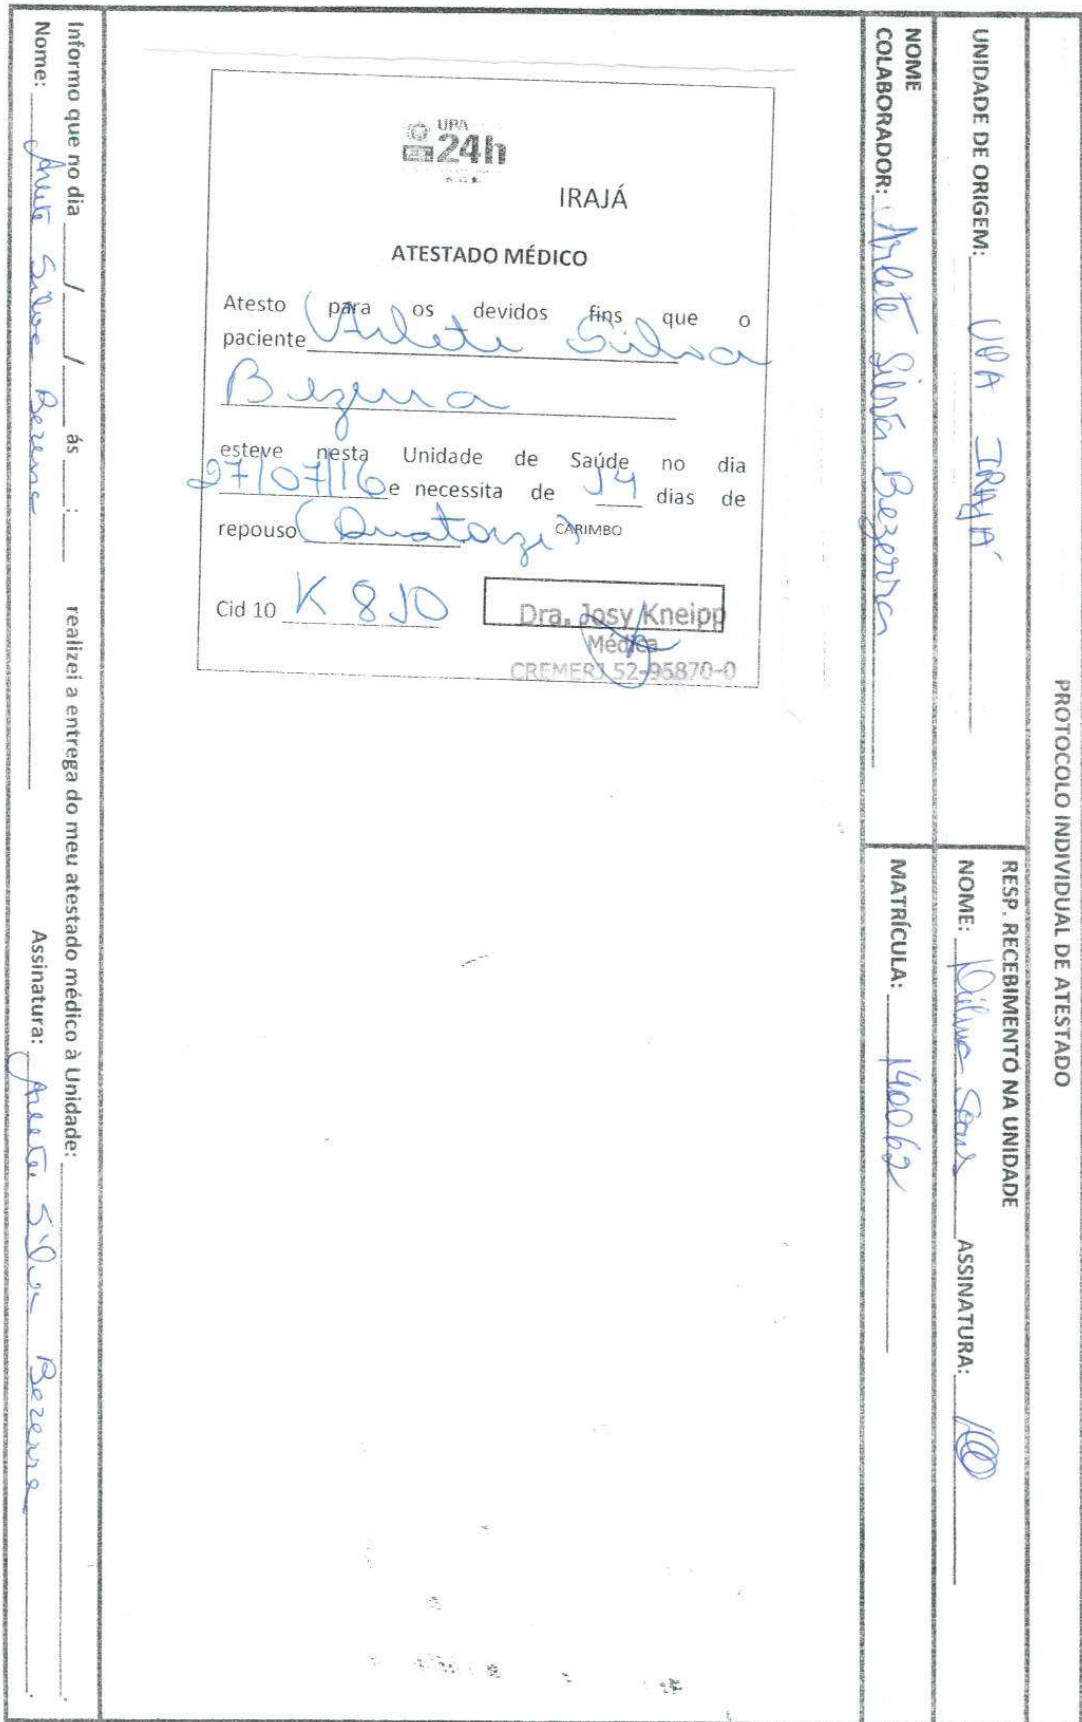 PROTOCOLO INDIVIDUAL DE ATESTADO
UNIDADE DE ORIGEM: UPA IRAJÁ
RESP. RECEBIMENTO NA UNIDADE
NOME: ASSINATURA:
NOME
COLABORADOR: Arlete Silva Bezerra
MATRÍCULA: 140062
UPA
24h
IRAJÁ
ATESTADO MÉDICO
Atesto para os devidos fins que o
paciente Arlete Silva
Bezerra
esteve nesta Unidade de Saúde no dia
27/07/16 e necessita de 14 dias de
repouso (Quatorze) CARIMBO
Cid 10 K 810
Dra. Josy Kneipp
Médica
CREMERJ 52-95870-0
Informo que no dia ___/___/___ ás ___:___ realizei a entrega do meu atestado médico à Unidade: ___.
Nome: Arlete Silva Bezerra Assinatura: Arlete Silva Bezerra.